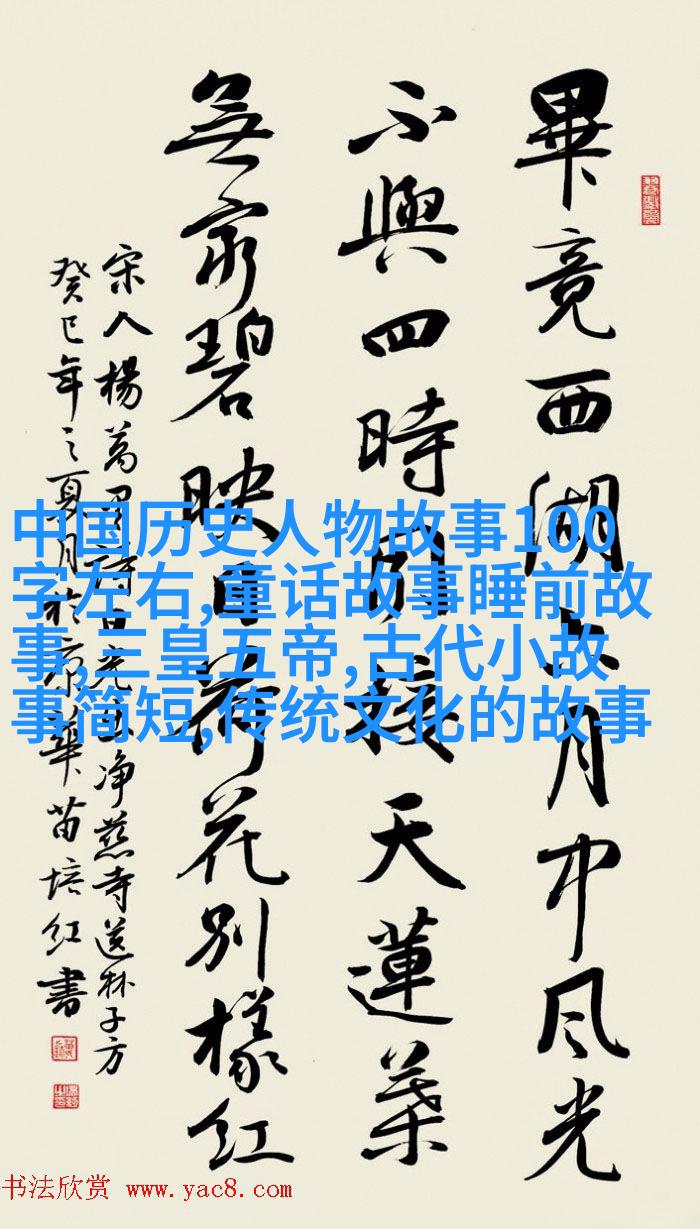 畢竟西湖六月中风光
不與四時同接天蓮葉
無窮碧映日荷花别樣红
宋人楊萬里詩曉出净慈寺送林子方
癸巳年之夏月於京華苗培红書
中国历史人物故事100
字左右,童话故事睡前故
事,三皇五帝,古代小故
事简短,传统文化的故事
书法欣赏 www.yac8.com